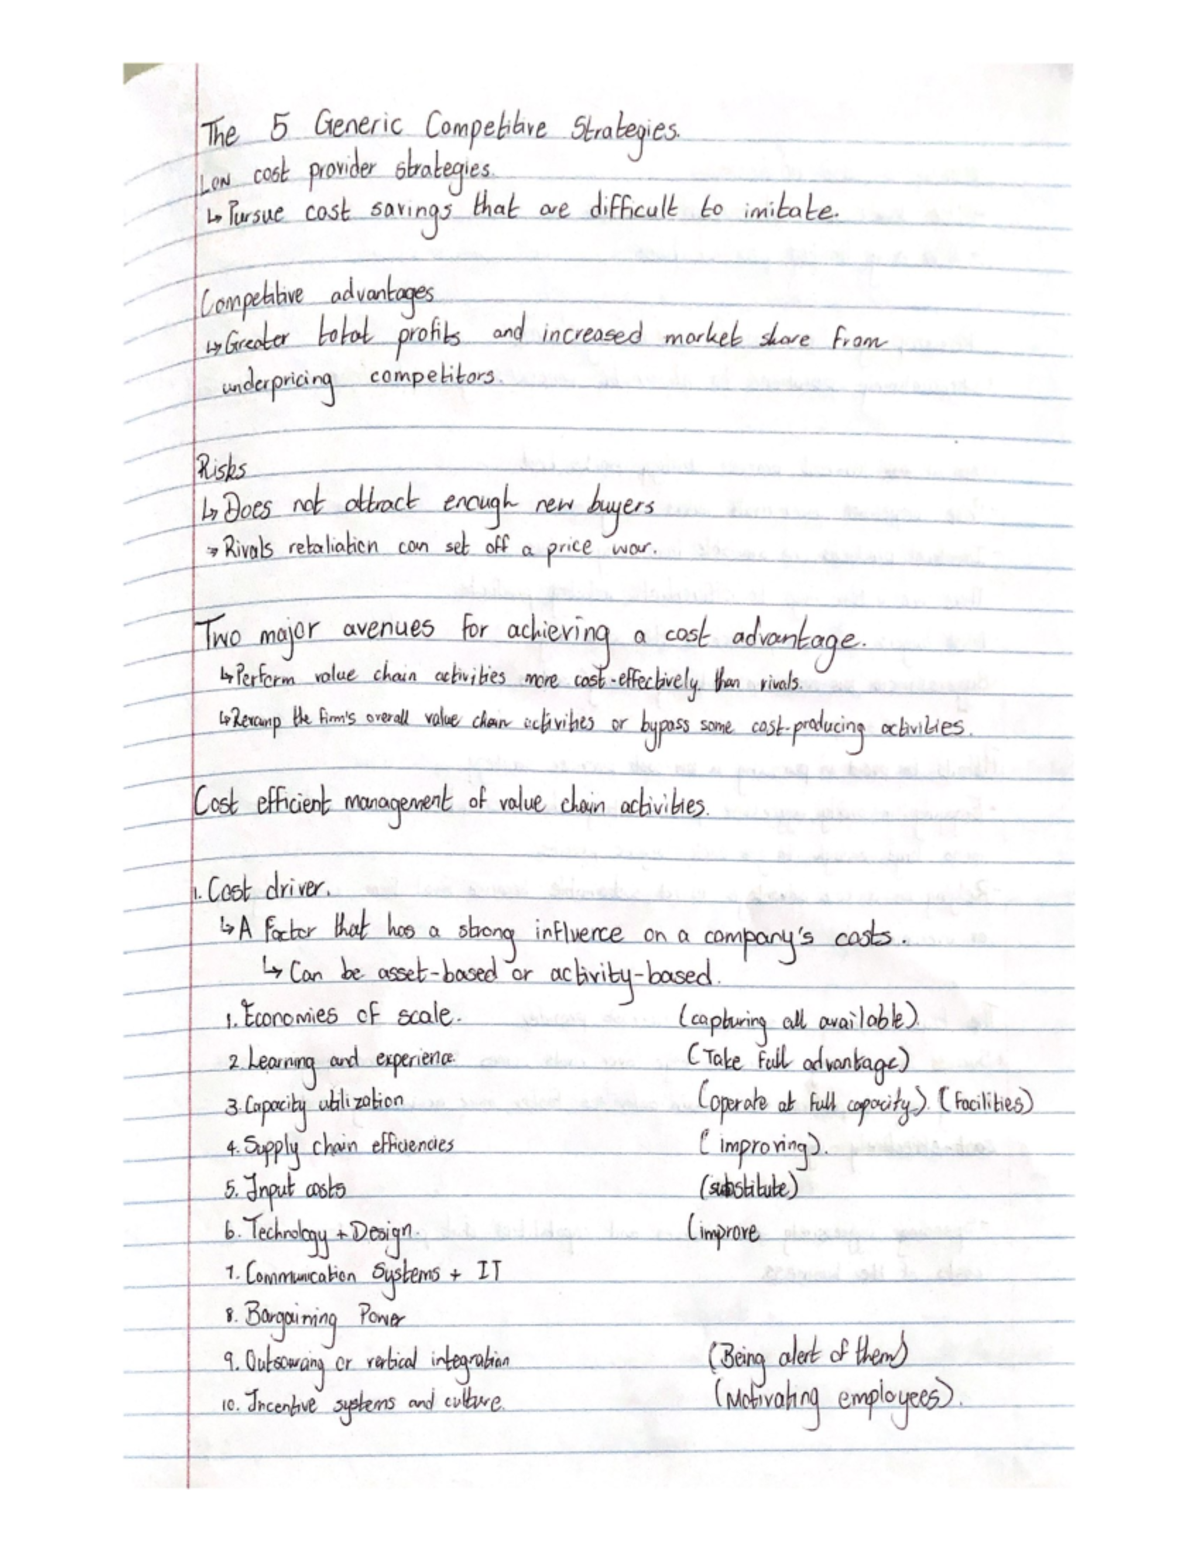 The 5 Generic Competitive Strategies.
Low cost provider strategies.
↳ Pursue cost savings that are difficult to imitate.
Competitive advantages
↳ Greater total profits and increased market share from
underpricing competitors.
Risks
↳ Does not attract enough new buyers
→ Rivals retaliation can set off a price war.
Two major avenues for achieving a cost advantage.
↳ Perform value chain activities more cost-effectively than rivals.
↳ Revamp the firm's overall value chain activities or bypass some cost-producing activities.
Cost efficient management of value chain activities.
1. Cost driver.
↳ A factor that has a strong influence on a company's costs.
↳ Can be asset-based or activity-based.
1. Economies of scale. (capturing all available).
2. Learning and experience. (Take full advantage)
3. Capacity utilization (operate at full capacity). (facilities)
4. Supply chain efficiencies (improving).
5. Input costs (substitute)
6. Technology + Design. (improve
7. Communication Systems + IT
8. Bargaining Power
9. Outsourcing or vertical integration (Being alert of them)
10. Incentive systems and culture. (Motivating employees).